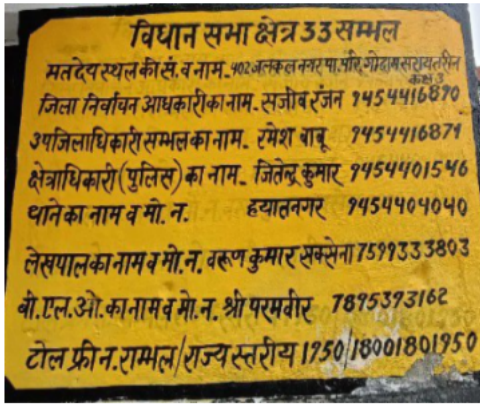 विधान सभा क्षेत्र 33 सम्भल
मतदेय स्थल की सं. व नाम- 402 जलकल नगर पा. परि. गोदाम सरायतरीन
कक्ष 3
जिला निर्वाचन आधकारी का नाम- सजीव रंजन 9454416890
उपजिलाधिकारी सम्भल का नाम- रमेश बाबू 9454416879
क्षेत्राधिकारी (पुलिस) का नाम- जितेन्द्र कुमार 9454401546
थाने का नाम व मो. न. हयातनगर 9454404040
लेखपाल का नाम व मो. न. वरूण कुमार सक्सेना 7599333803
बी.एल.ओ. का नाम व मो. न. श्री परमवीर 7895393162
टोल फ्री न. सम्भल/राज्य स्तरीय 1950/18001801950